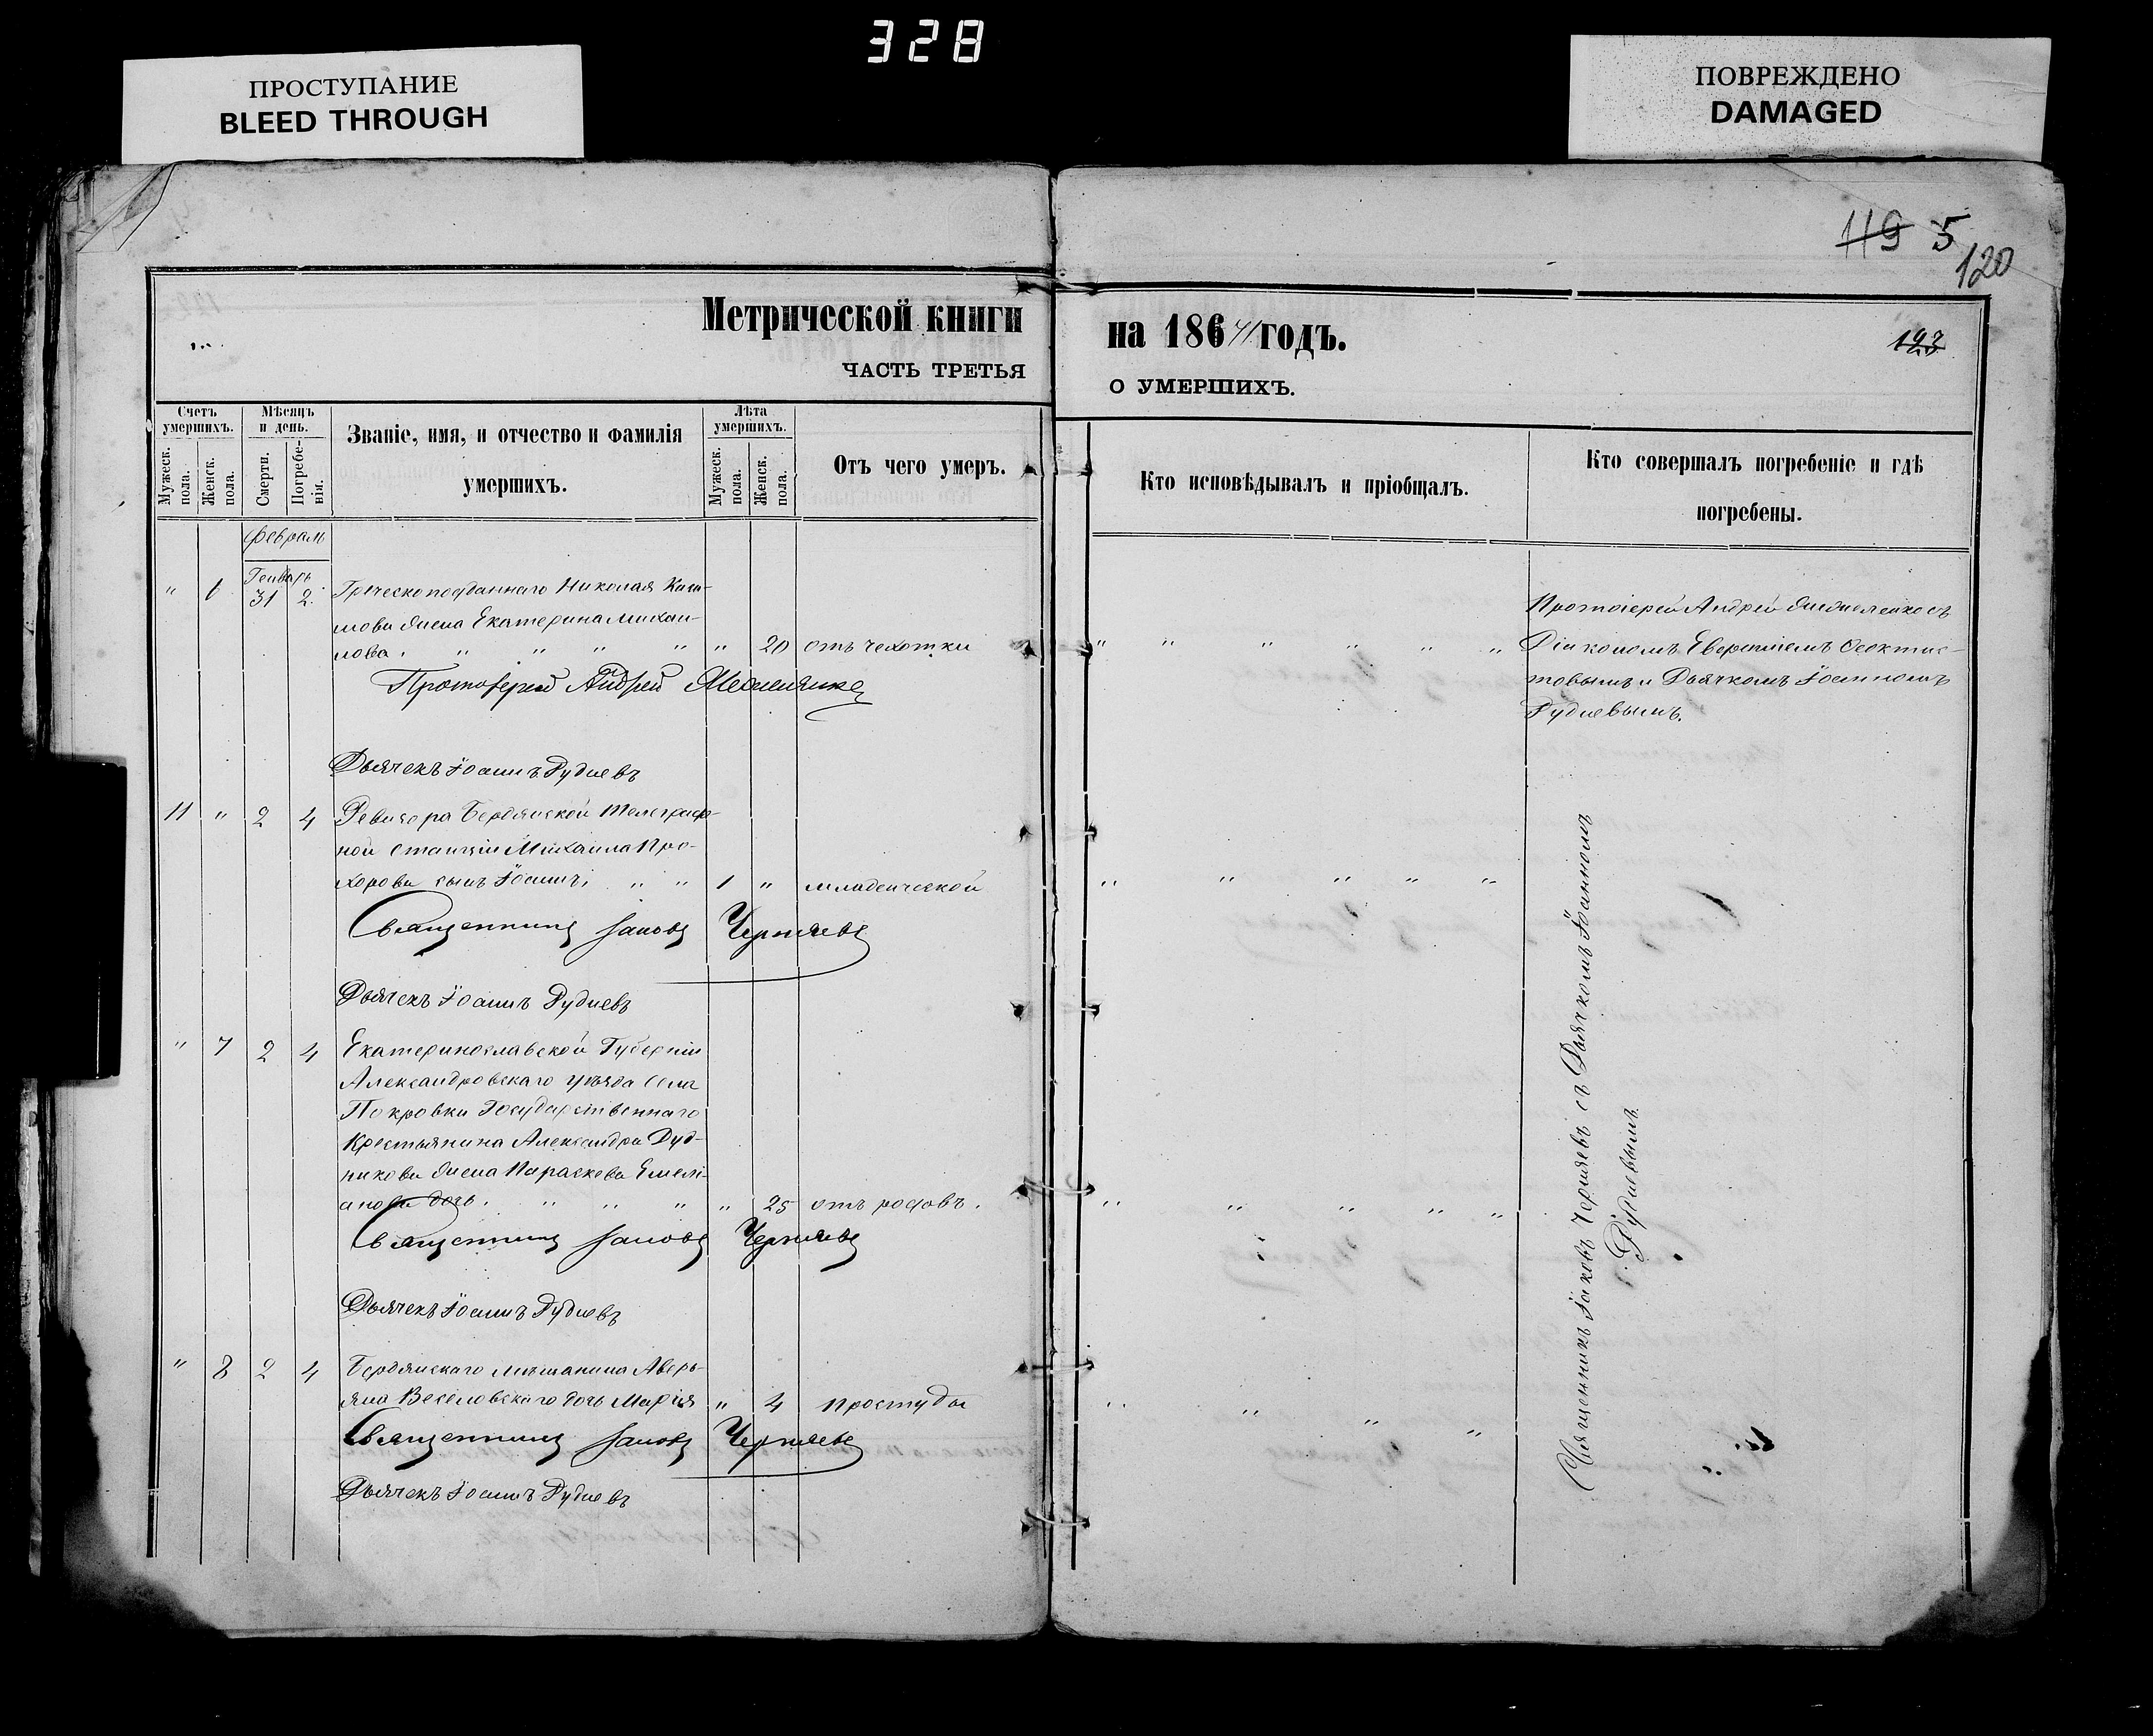 328
ПРОСТУПАНИЕ
BLEED THROUGH
ПОВРЕЖДЕНО
DAMAGED
119 5
120
Метрической книги
ЧАСТЬ ТРЕТЬЯ
на 1864 годъ.
123
О УМЕРШИХЪ.
Счетъ умершихъ.
Мужеск. пола.
Женск. пола.
Мѣсяцъ и день.
Смерти.
Погребе-нія.
Званіе, имя, и отчество и фамилія
умершихъ.
Лѣта умершихъ.
Мужеск. пола.
Женск. пола.
Отъ чего умеръ.
Кто исповѣдывалъ и пріобщалъ.
Кто совершалъ погребеніе и гдѣ
погребены.
Февраль
Генварь
" 6 31 2. Греческоподданнаго Николая
жена Екатерина Михаи-
лова. " " " " " 20 отъ чехотки
Протоіерей Андрей
Протоіерей Андрей съ
Діакономъ Ѳеоктис-
товымъ и Дьячкомъ Іоанномъ
Рудневымъ.
Дьячекъ Іоаннъ Рудневъ
11 " 2 4 Ревизора Бердянской Телеграф-
ной Станціи Михаила Про-
хорова сынъ Іоаннъ. " " 1 " младенческой
Священникъ Іаковъ Черняевъ
Дьячекъ Іоаннъ Рудневъ
" 7 2 4 Екатеринославской Губерніи
Александровскаго уѣзда Села
Покровки Государственнаго
Крестьянина Александра Дуд-
никова жена Параскева Емелі-
анова дочь. " " " " 25 отъ родовъ.
Священникъ Іаковъ Черняевъ
Дьячекъ Іоаннъ Рудневъ
" 8 2 4 Бердянскаго мѣщанина Аверь-
яна Веселовскаго дочь Марія " 4 простуды
Священникъ Іаковъ Черняевъ
Дьячекъ Іоаннъ Рудневъ
Священникъ Іаковъ Черняевъ съ Дьячкомъ Іоанномъ
Рудневымъ.